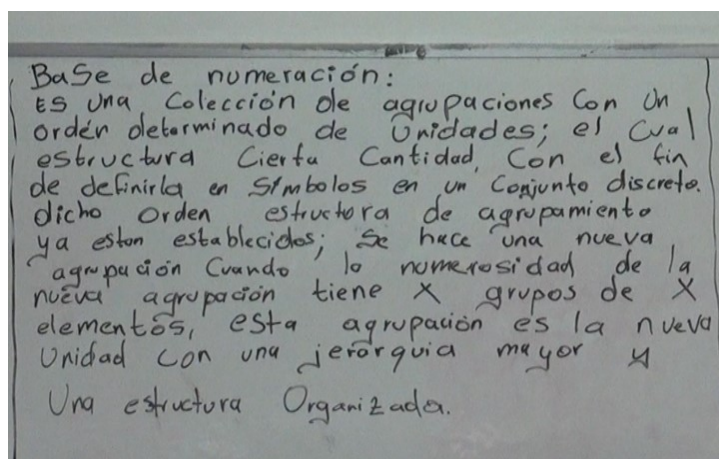 Base de numeración:
Es una Colección de agrupaciones Con Un
orden determinado de Unidades; el Cual
estructura Cierta Cantidad, Con el fin
de definirla en Símbolos en un Conjunto discreto.
dicho Orden estructora de agrupamiento
ya estan establecidos; Se hace una nueva
agrupación Cuando la numerosidad de la
nueva agrupación tiene X grupos de X
elementos, esta agrupación es la nueva
Unidad con una jerarquia mayor y
Una estructura Organizada.